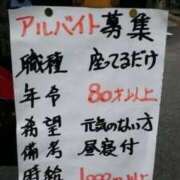 アルバイト募集
職種 座ってるだけ
年令 80才以上
希望 元気のない方
備考 昼寝付
時給 1000円以上